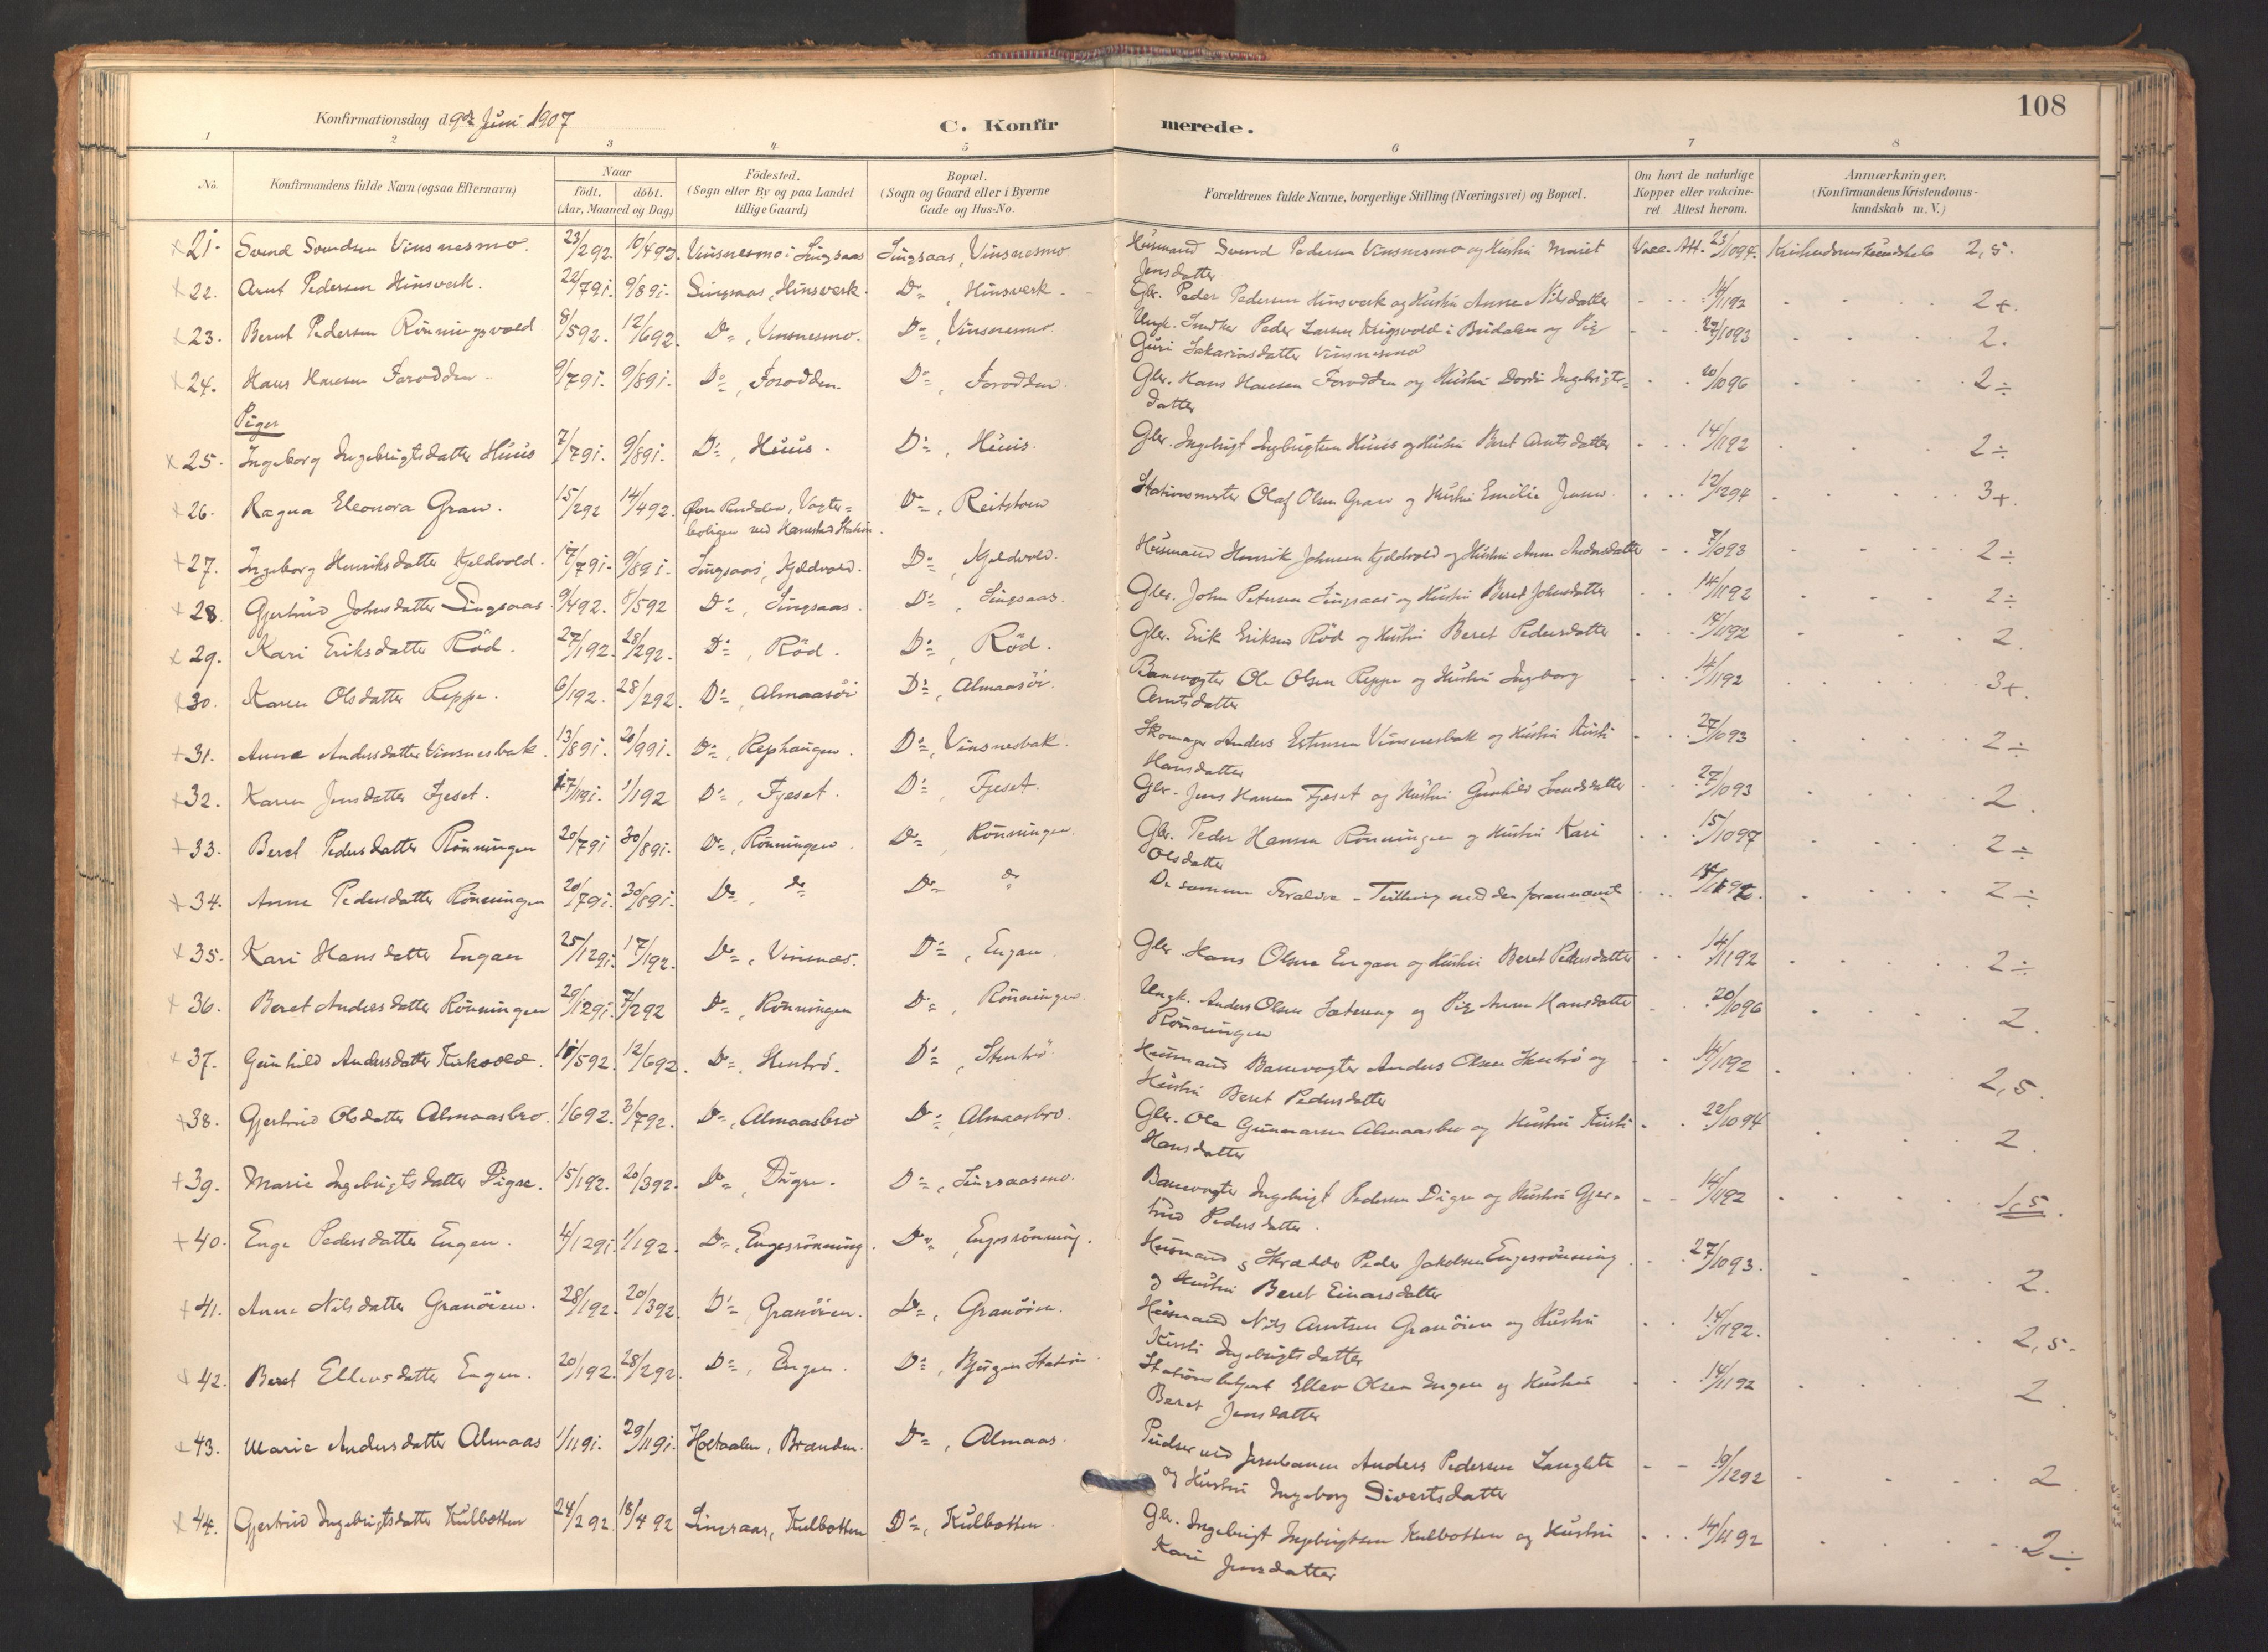 108
Konfirmationsdag d. 9de Juni 1907
C. Konfir merede.
1 2 3 4 5 6 7 8
No. Konfirmandens fulde Navn (ogsaa Efternavn) Naar født. døbt. (Aar, Maaned og Dag) Fødested. (Sogn eller By og paa Landet tillige Gaard) Bopæl. (Sogn og Gaard eller i Byerne Gade og Hus-No. Forældrenes fulde Navne, borgerlige Stilling (Næringsvei) og Bopæl. Om havt de naturlige Kopper eller vakcineret. Attest herom. Anmærkninger. (Konfirmandens Kristendomskundskab m. V.)
21. Svend Svendsen Vinsnesmo. 23/2 92. 10/4 92. Vinsnesmo i Singsaas Singsaas, Vinsnesmo Husmand Svend Pedersen Vinsnesmo og Hustru Marit Vacc. Att. 23/10 94. Kristendomskundskab 2,5.
Jensdatter
22. Arnt Pedersen Hinsverk. 22/7 91. 9/8 91. Singsaas, Hinsverk. Do, Hinsverk - Gbr. Peder Pedersen Hinsverk og Hustru Anne Nilsdatter 14/11 92 2+.
23. Bernt Pedersen Rönningsvold 8/5 92. 12/6 92. Do, Vinsnesmo. Do, Vinsnesmo. Ungk. Peder Larsen i Budalen og Pige 27/10 93 2.
Guri Sakariasdatter Vinsnesmo
24. Hans Hansen Forodden 9/7 91. 9/8 91. Do, Forodden. Do, Forodden. Gbr. Hans Hansen Forodden og Hustru Dordi Ingebrigts- 20/10 96 2÷
datter
Piger
25. Ingeborg Ingebrigtsdatter Huus 7/7 91. 9/8 91. Do, Huus. Do, Huus. Gbr. Ingebrigt Ingebrigtsen Huus og Hustru Beret Arntsdatter 14/11 92 2÷
26. Ragna Eleonora Gran. 15/2 92 14/4 92. Øvre Rendalen, Vogter- Do, Reitstøen Stationsmester Olaf Olsen Gran og Hustru Emilie Jensen. 12/12 94 3+.
boligen ved Hanestad Station.
27. Ingeborg Henriksdatter Kjeldvold. 17/7 91. 9/8 91. Singsaas, Kjeldvold. Do, Kjeldvold. Husmand Henrik Johnsen Kjeldvold og Hustru Anne Andersdatter 7/10 93 2÷
28. Gjertrud Johnsdatter Singsaas. 9/4 92. 8/5 92 Do, Singsaas. Do, Singsaas. Gbr. John Petersen Singsaas og Hustru Beret Johnsdatter 14/11 92 2÷
29. Kari Eriksdatter Röd. 27/1 92. 28/2 92. Do, Röd. Do, Röd. Gbr. Erik Eriksen Röd og Hustru Beret Pedersdatter 14/11 92 2.
30. Karen Olsdatter Reppe. 6/1 92. 28/2 92. Do, Almaasöi Do, Almaasöi. Banevogter Ole Olsen Reppe og Hustru Ingeborg 14/11 92 3+.
Arntsdatter
31. Anne Andersdatter Vinsnesbak. 13/8 91. 20/9 91. Do, Rephaugen. Do, Vinsnesbak. Skomager Anders Estensen Vinsnesbak og Hustru Kirsti 27/10 93 2÷
Hansdatter
32. Karen Jensdatter Fjeset. 17/11 91. 1/1 92 Do, Fjeset. Do, Fjeset. Gbr. Jens Hansen Fjeset og Hustru Gunhild Svendsdatter 27/10 93 2.
33. Beret Pedersdatter Rönningen 20/7 91 30/8 91. Do, Rönningen. Do, Rönningen. Gbr. Peder Hansen Rönningen og Hustru Kari 15/10 97 2÷
Olsdatter
34. Anne Pedersdatter Rönningen 20/7 91. 30/8 91. Do, do Do do De samme Foreldre - Tvilling med den forannævnte 2÷
35. Kari Hansdatter Engan 25/12 91. 17/1 92. Do, Vinsnes. Do, Engan. Gbr. Hans Olsen Engan og Hustru Beret Pedersdatter 14/11 92 2÷
36. Beret Andersdatter Rönningen 29/12 91. 7/2 92 Do, Rönningen Do, Rönningen. Ungk. Anders Olsen og Pige Anne Hansdatter 20/10 96 2.
Rönningen
37. Gunhild Andersdatter Kirkvold. 11/5 92. 12/6 92. Do, Stenbrö. Do, Stenbrö. Husmand Banevogter Anders Olsen Stenbrö og 14/11 92 2,5.
Hustru Beret Pedersdatter
38. Gjertrud Olsdatter Almaasbro. 1/6 92. 3/7 92. Do, Almaasbro Do, Almaasbro. Gbr. Ole Gunnarsen Almaasbro og Hustru Kirsti 22/10 94 2.
Hansdatter
39. Marie Ingebrigtsdatter Digre. 15/1 92. 20/3 92. Do, Digre. Do, Singsaasmo. Banevogter Ingebrigt Pedersen Digre og Hustru Gjer- 14/11 92 1,5.
trud Pedersdatter.
40. Enge Pedersdatter Engen. 4/12 91. 1/1 92. Do, Engesrönning. Do, Engesrönning. Husmand & Skrædder Peder Jakobsen Engesrönning 27/10 93. 2.
og Hustru Beret Einarsdatter
41. Anne Nilsdatter Granöien. 28/1 92. 20/3 92. Do, Granöien. Do, Granöien. Husmand Nils Arntsen Granöien og Hustru 14/11 92. 2,5.
Kirsti Ingebrigtsdatter
42. Beret Ellevsdatter Engen. 20/1 92. 28/2 92. Do, Engen. Do, Bjørgen Station. Stationsbetjent Ellev Olsen Engen og Hustru 14/11 92 2.
Beret Jensdatter
43. Marie Andersdatter Almaas 1/11 91. 29/11 91. Holtaalen, Brænden. Do, Almaas. Pudser ved Jernbanen Anders Pedersen Langlete 19/12 92 2.
og Hustru Ingeborg Sivertsdatter
44. Gjertrud Ingebrigtsdatter Kulbotten 24/2 92. 18/4 92 Singsaas, Kulbotten Do, Kulbotten. Gbr. Ingebrigt Ingebrigtsen Kulbotten og Hustru 14/11 92 2÷
Kari Jensdatter